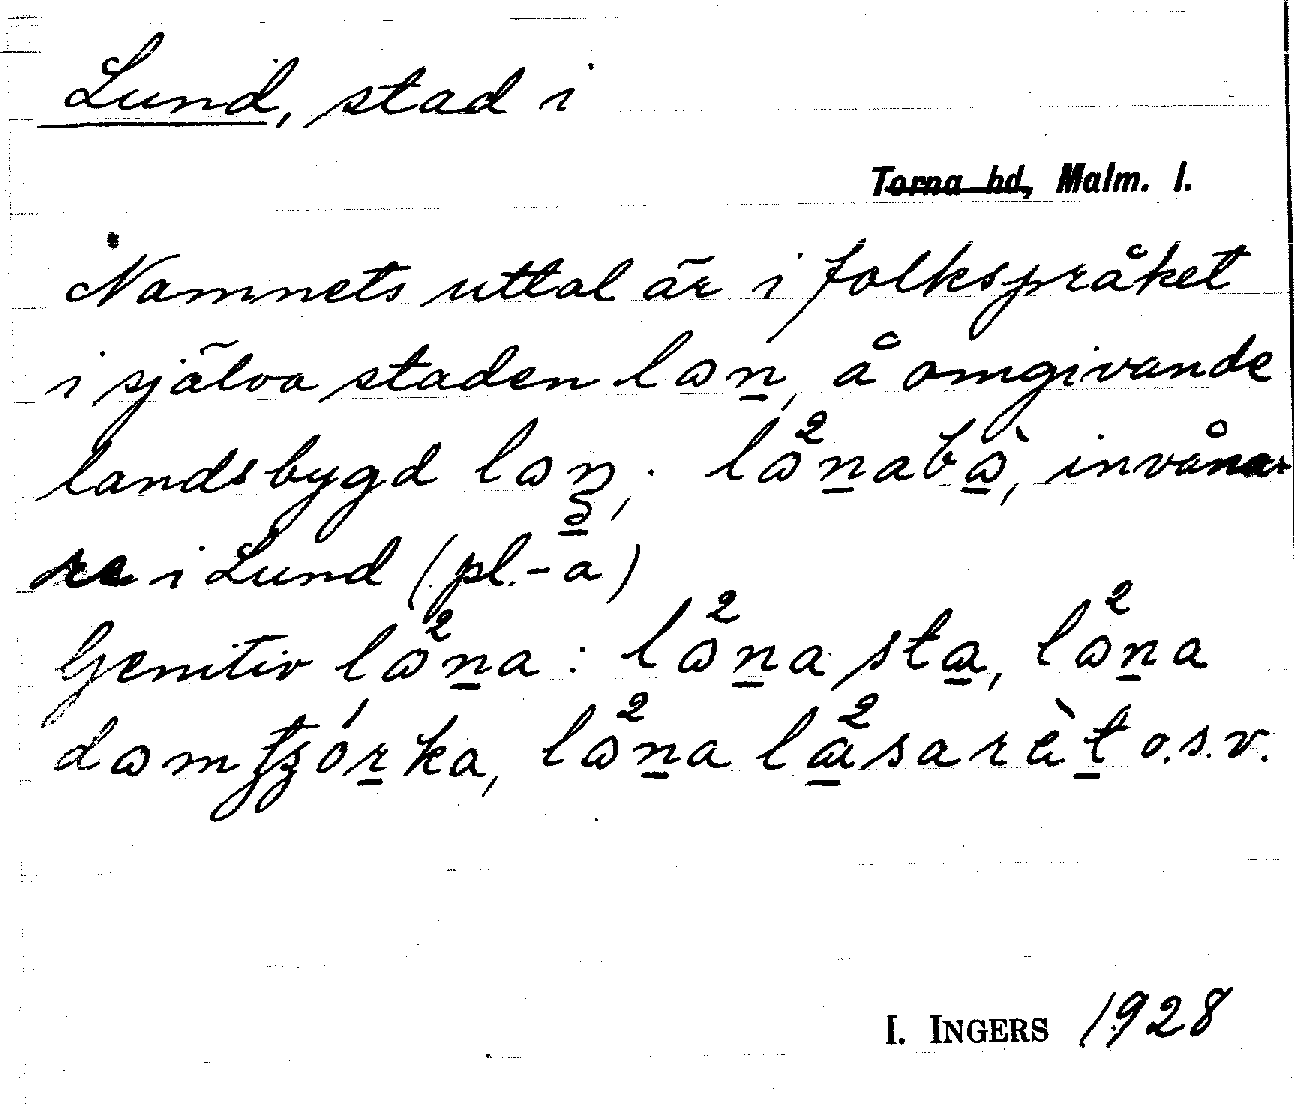 Lund, stad i
Torna hd, Malm. l.
Namnets uttal är i folkspråket
i själva staden lɷn̲, å omgivande
landsbygd lɷn; lɷ²n̲abɷ̲̀, invåna-
re i Lund (pl.-a)
Genitiv lɷ²n̲a: lɷ²n̲a sta̲, lɷ²n̲a
dɷmʈʒór̲ka, lɷ²n̲a la̲²sarèt̲ o.s.v.
I. INGERS 1928